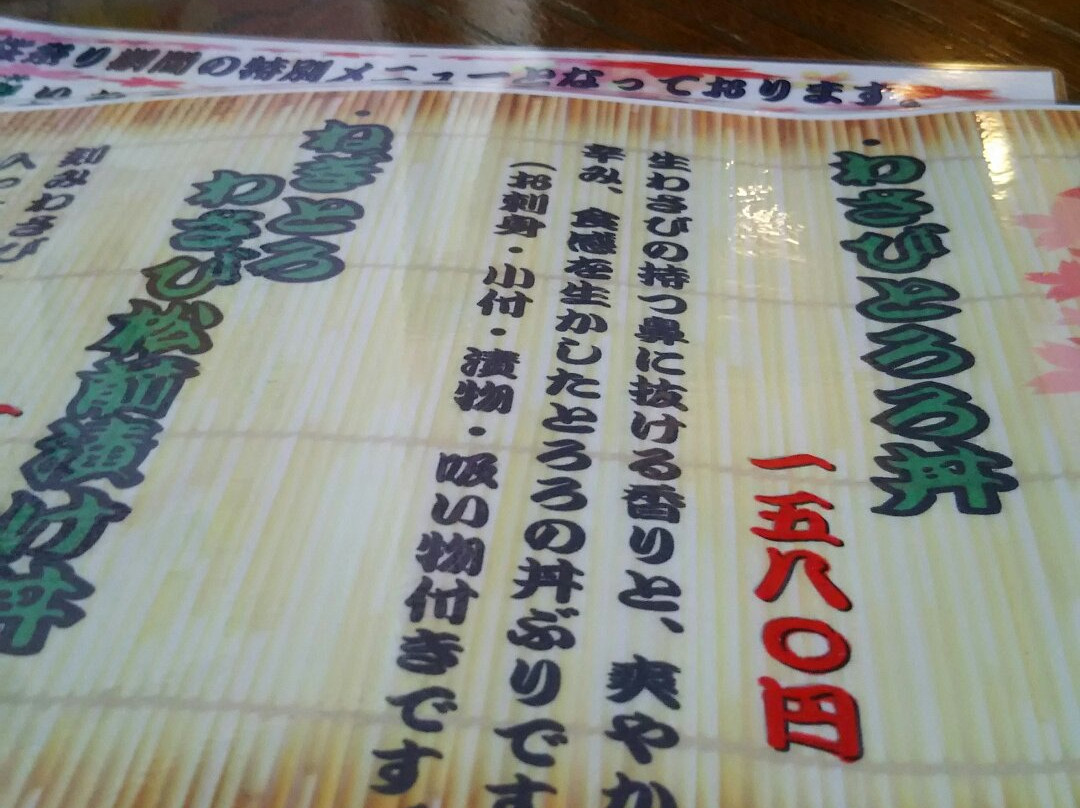 り期間の特別メニューとなっております。
・わさびとろろ丼
一五八〇円
生わさびの持つ鼻に抜ける香りと、爽やか
辛み、食感を生かしたとろろの丼ぶりです
(お刺身・小付・漬物・吸い物付きです
・ねぎとろ
わさび松前漬け丼
刻みわさび
入っ